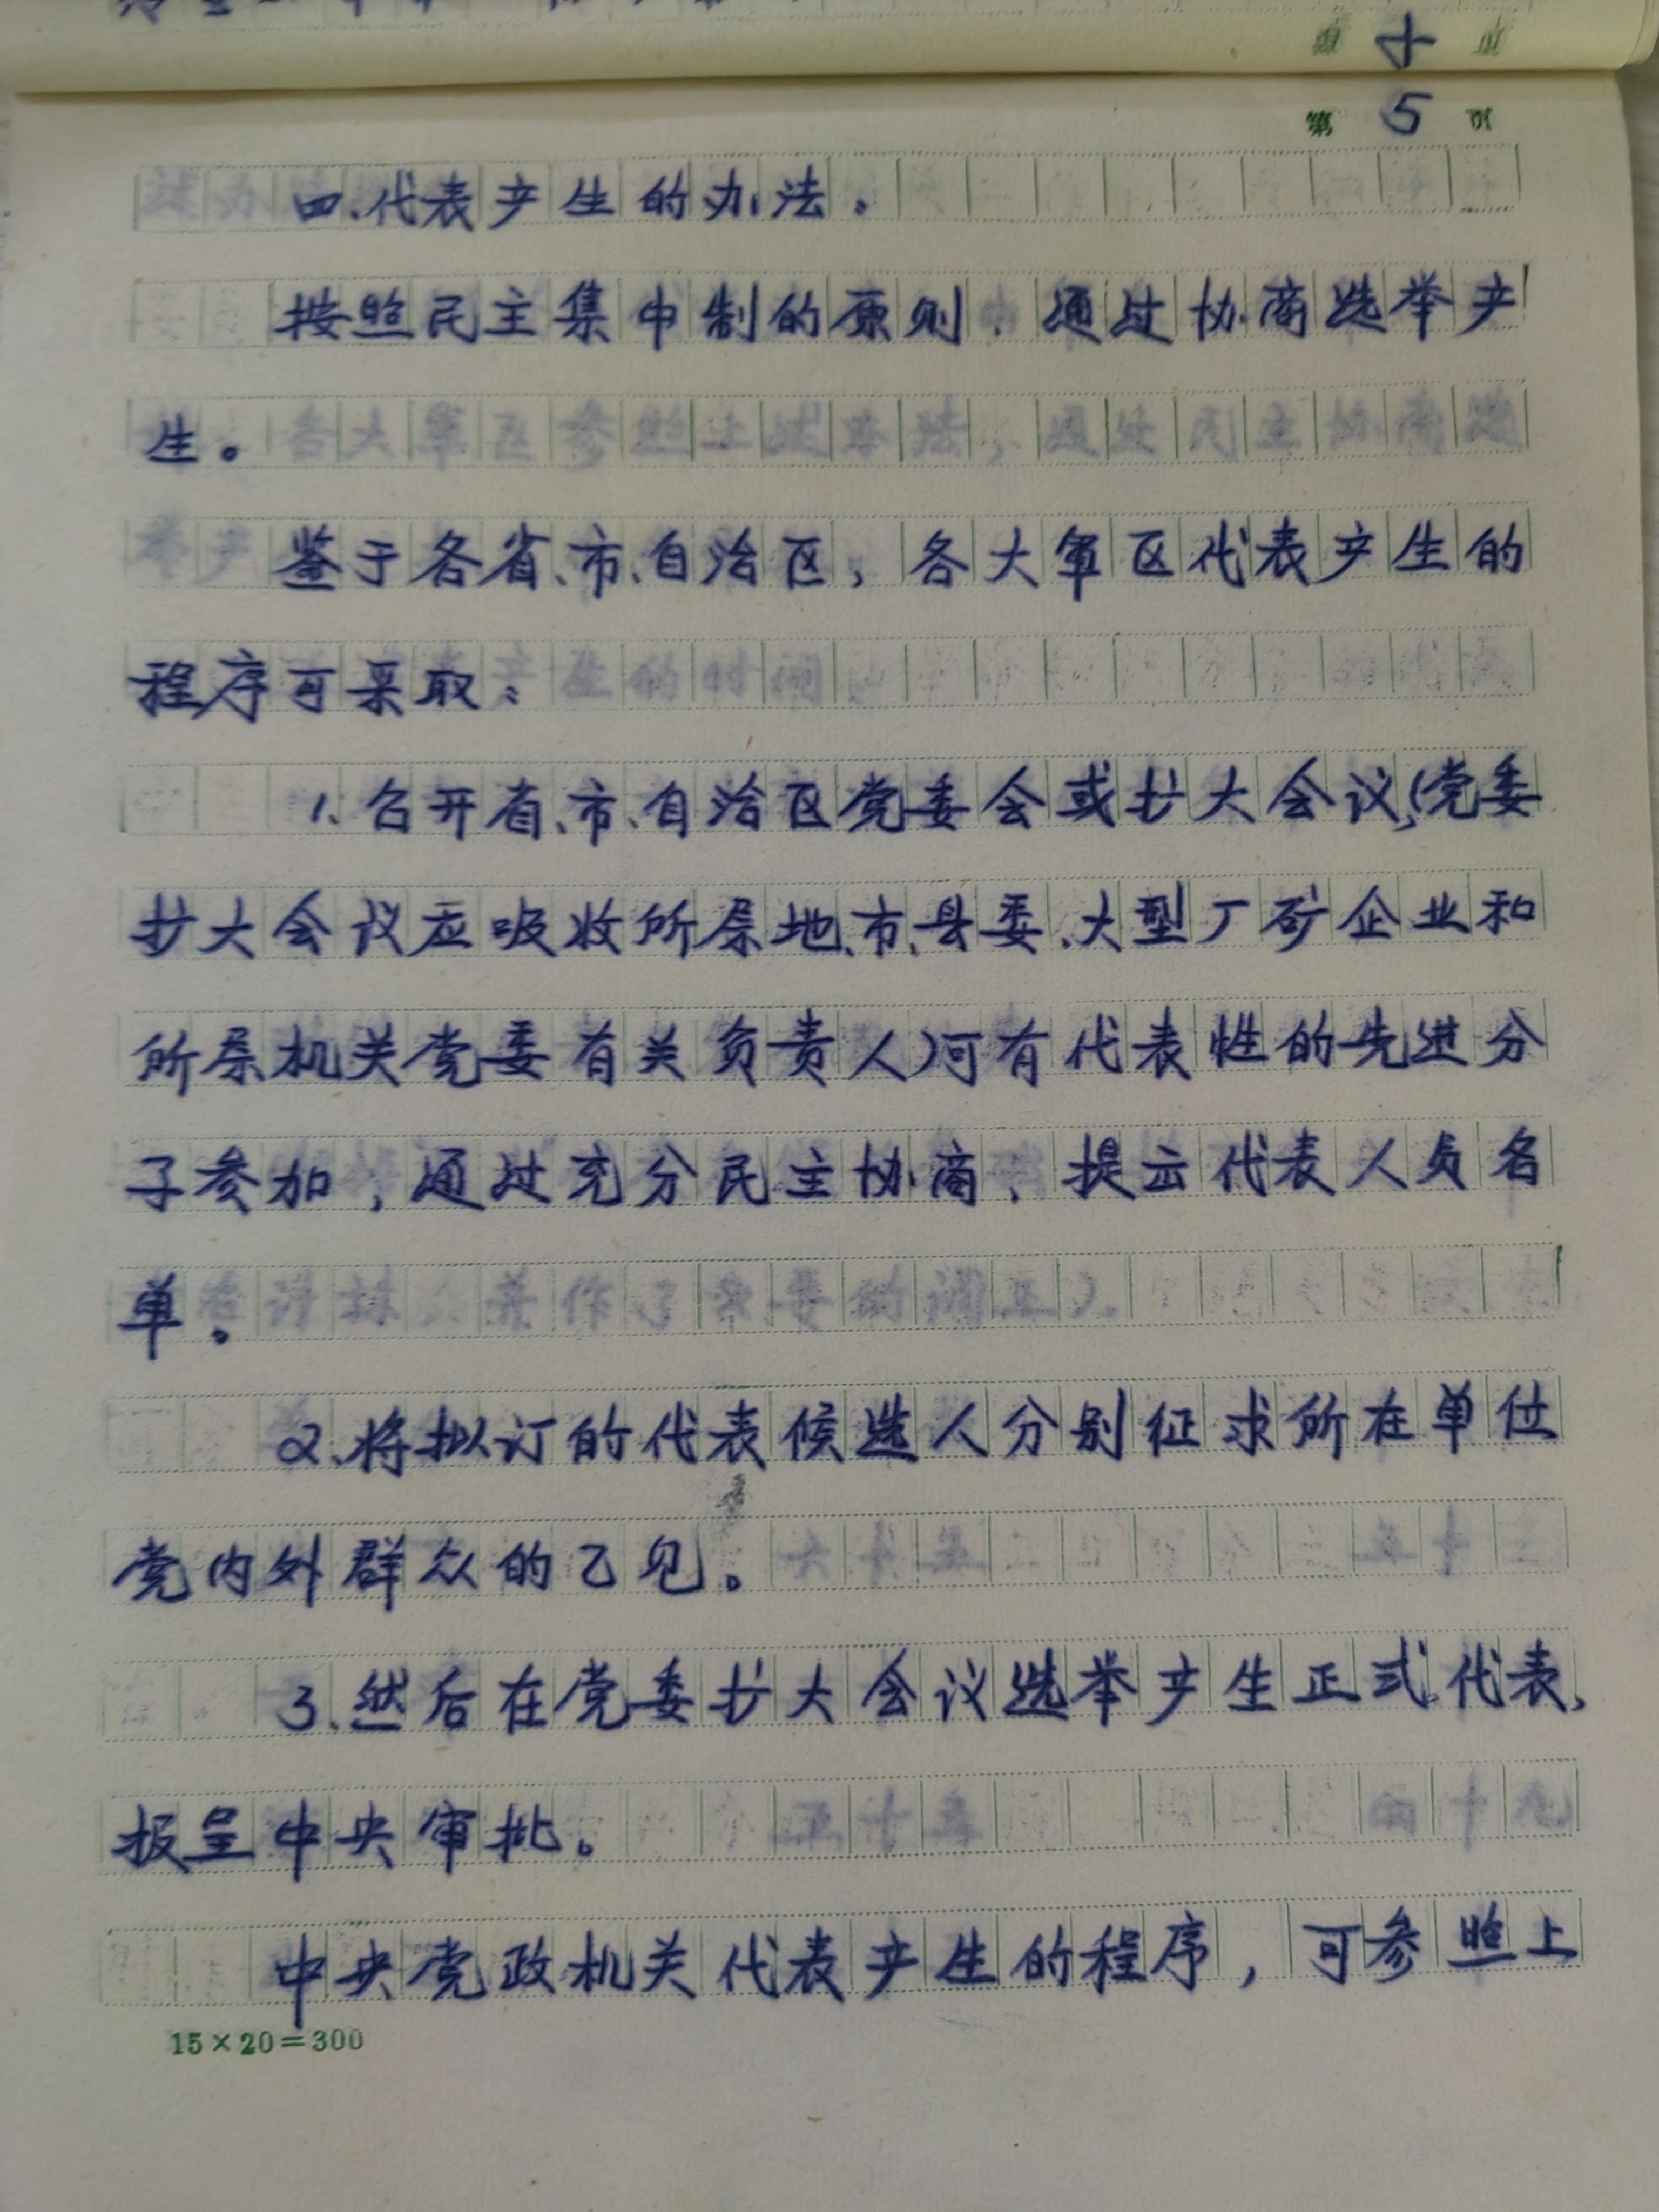 第 4 页
第 5 页
四、代表产生的办法。
按照民主集中制的原则，通过协商选举产
生。
鉴于各省、市、自治区，各大军区代表产生的
程序可采取：
1、召开省、市、自治区党委会或扩大会议，(党委
扩大会议应吸收所属地、市、县委、大型厂矿企业和
所属机关党委有关负责人)可有代表性的先进分
子参加，通过充分民主协商，提出代表人员名
单。
2、将拟订的代表候选人分别征求所在单位
党内外群众的乙见。
3、然后在党委扩大会议选举产生正式代表，
报呈中央审批。
中央党政机关代表产生的程序，可参照上
15×20=300